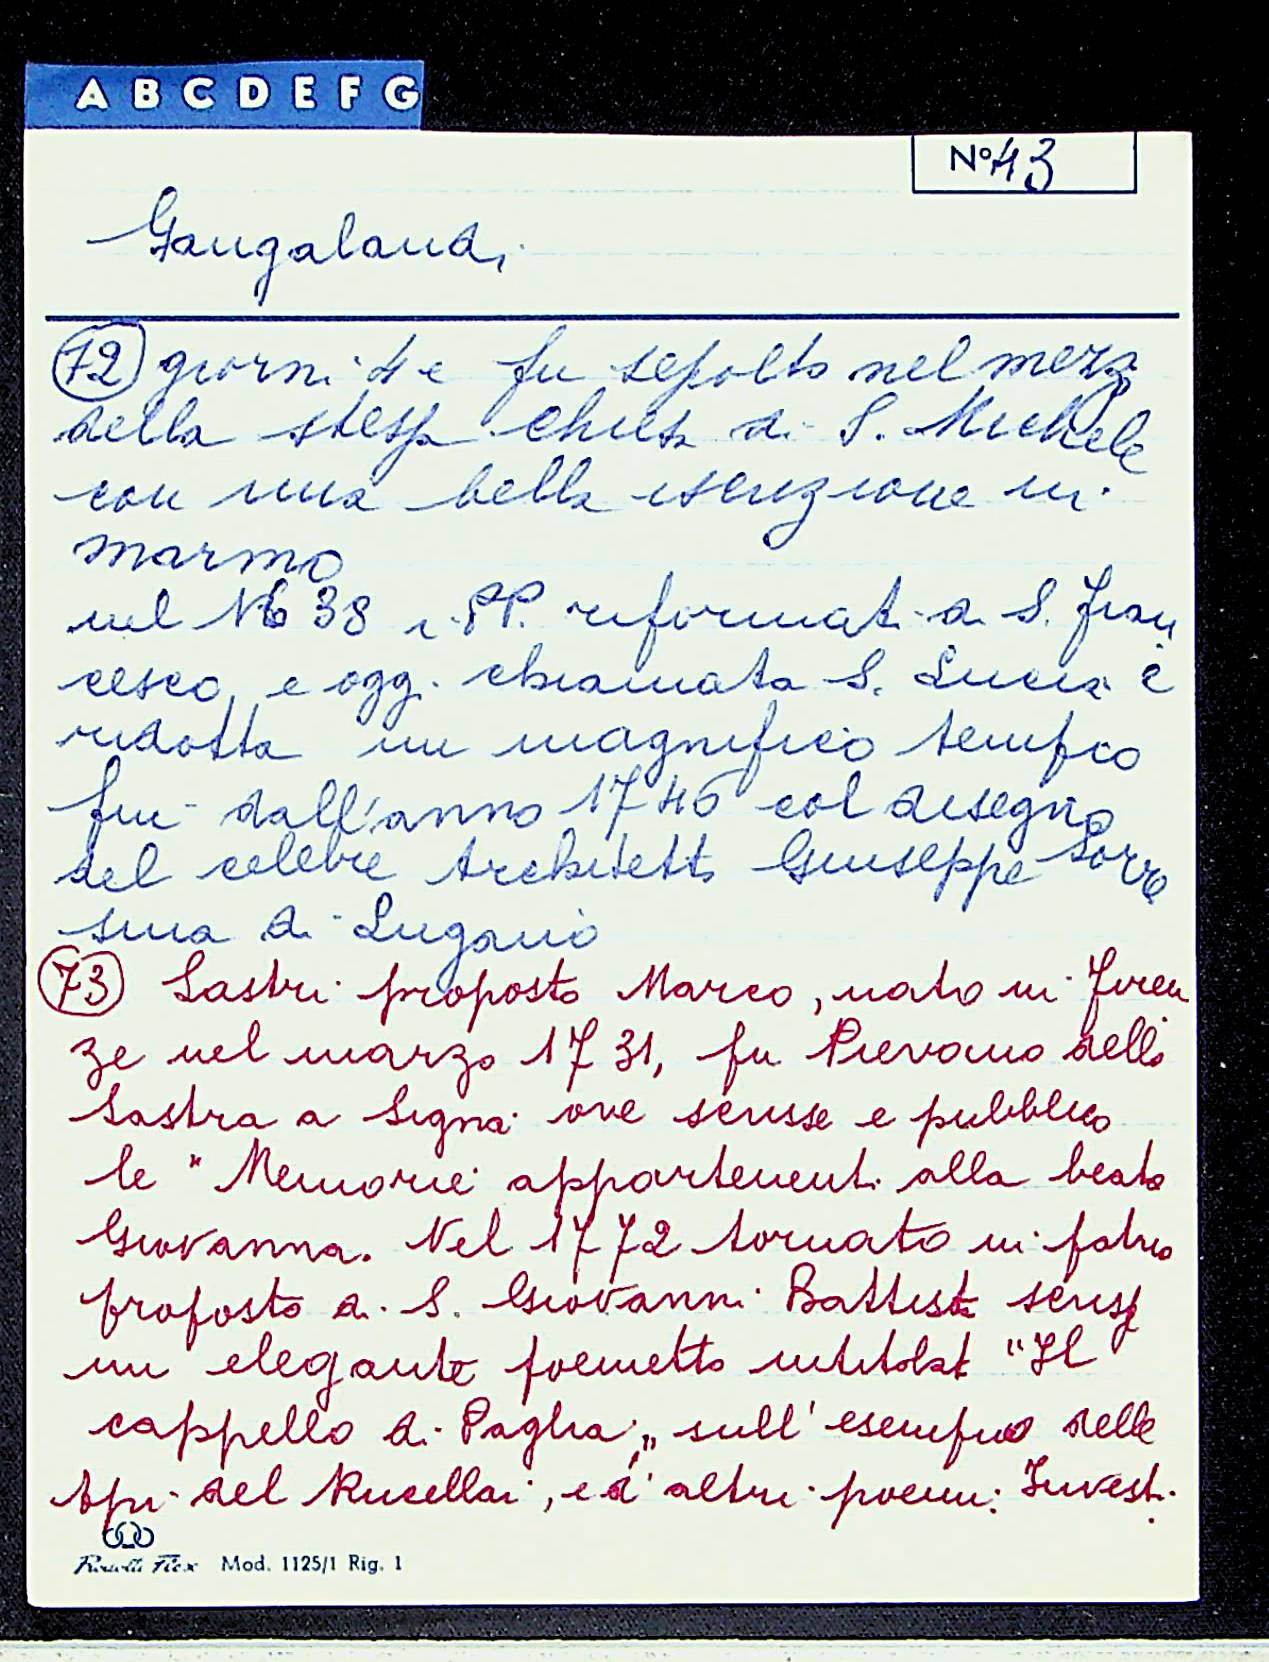 A B C D E F G
N° 43
Gangalandi
72 giorni 4 e fu sepolto nel mezzo
della stessa chiesa di S. Michele
con una bella iscrizione in
marmo
nel 1638 i PP. riformati di S. Fran
cesco, e oggi chiamata S. Lucia è
ridotta un magnifico tempio
fin dall'anno 1746 col disegno
del celebre Architetto Giuseppe
sina di Lugano
73 Lastri proposto Marco, nato in Firen
ze nel marzo 1731, fu Pievano della
Lastra a Signa ove scrisse e pubblico
le "Memorie appartenenti alla beata
Giovanna. Nel 1772 tornato in patria
proposto di S. Giovanni Battista scrisse
un elegante poemetto intitolat "Il
cappello di Paglia", sull'esempio delle
Api del Rucellai, e d'altri poemi: Investi.
Mod. 1125/1 Rig. 1